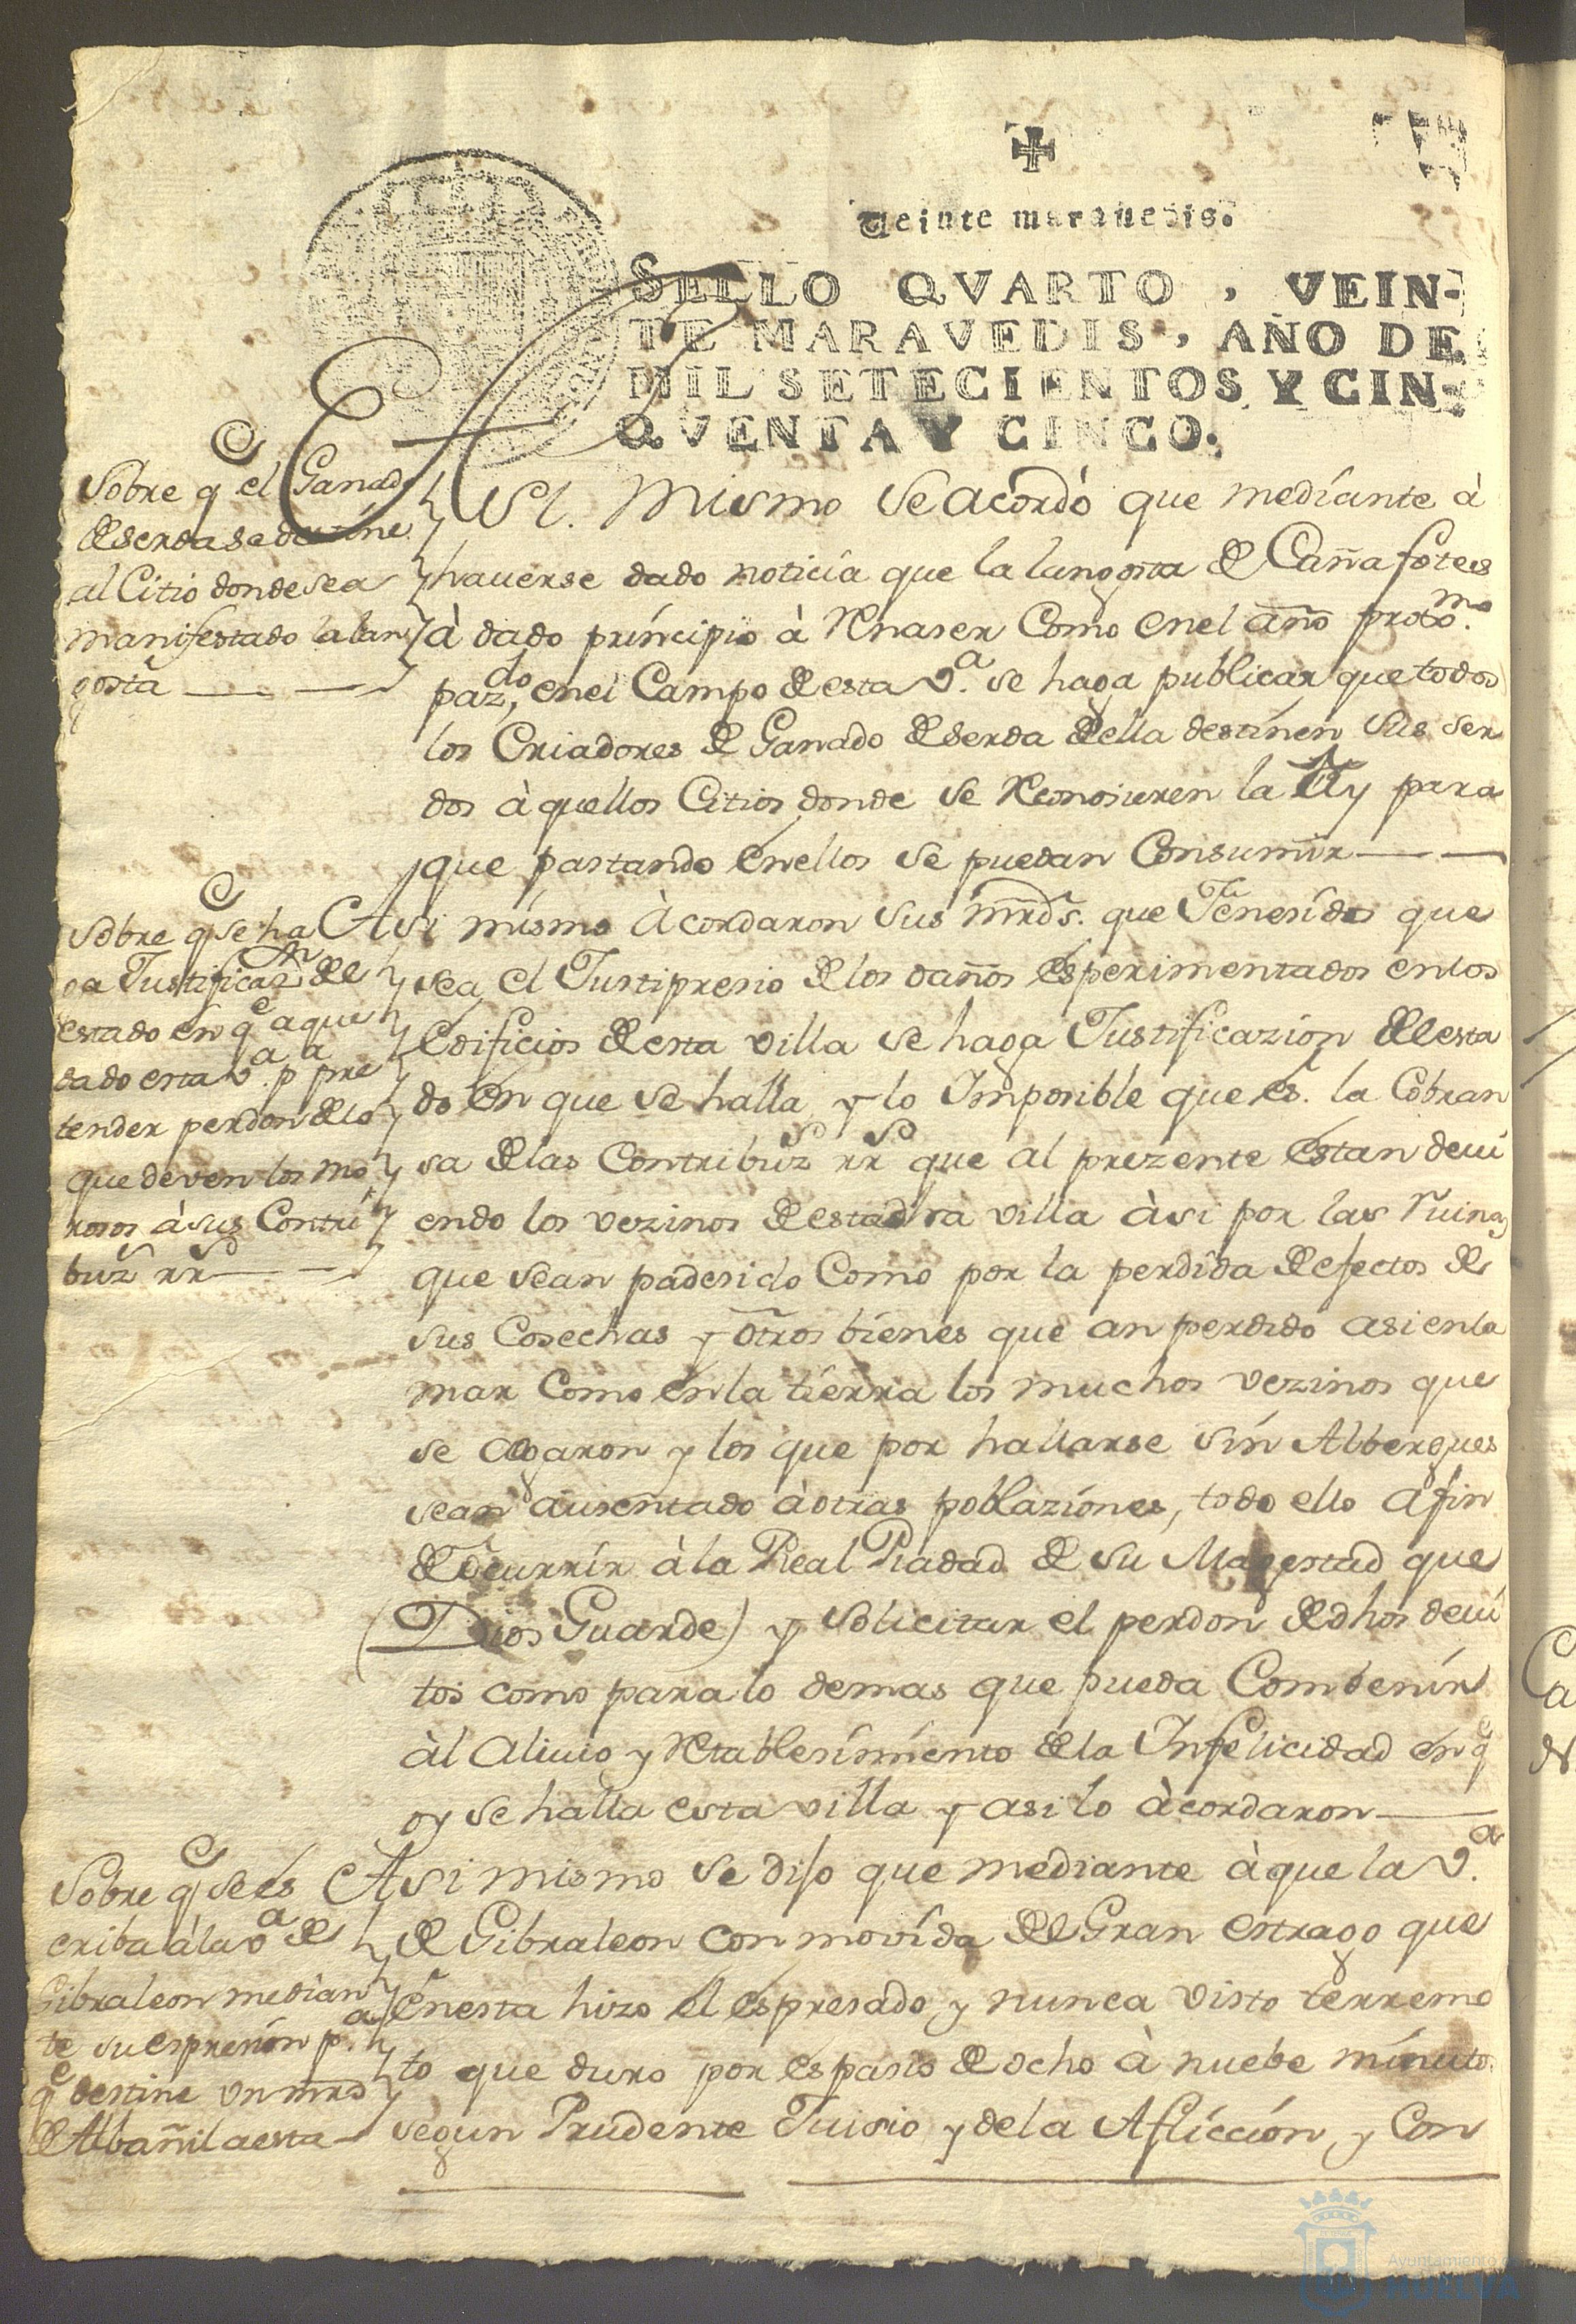 Veinte maravedis.
SELLO QVARTO, VEIN-
TE MARAVEDIS, AÑO DE
MIL SETECIENTOS Y CIN-
QVENTA Y CINCO.
Sobre q el Ganado
de serda se destine
al Citio donde sea
manifestado la lan
gosta
Asi. Mismo se acordò que mediante à
hauerse dado noticia que la langosta de Cañafotes
à dado principio à Renaser Como enel año proxo.mo
pazdo, enel Campo de esta V.a se haga publicar que todos
los Criadores de Ganado de serda de ella destinen sus ser
dos à quellos Citios donde se Reconosieren la Ay para
que pastando en ellos se puedan Consumir
Sobre q se ha
ga Justificazn del
estado en qe a que
dado esta Va. pa pre
tender perdon de lo
que deven los mo
rosos à sus Contri
buzs rrs
Asi mismo Acordaron sus mrds. que Fenesido que
sea el Justipresio de los daños esperimentados en los
Edificios de esta villa se haga Justificazion del esta
do en que se halla y lo Imposible que es. la Cobran
sa de las Contribuzs rrs que al prezente estan devi
endo los vezinos de esta dha villa àsi por las Ruinas
que sean padesido Como por la perdida de efectos de
sus Cosechas y otros bienes que an perdido asi enla
mar Como en la tierra los muchos vezinos que
se aogaron y los que por hallarse sin Albergues
sean ausentado à otras poblaziones, todo ello a fin
de ocurrir à la Real Piadad de su Magestad que
(Dios Guarde) y solicitar el perdon de dhos devi
tos como para lo demas que pueda Combenir
àl Aliuio y Restablesimiento de la Infelicidad en qe
oy se halla esta villa y asi lo àcordaron
Sobre q se es
criba à la Va de
Gibraleon median
te su espresion pa.
qe destine un mro
de Albañil a esta
Asi mismo se dijo que mediante à que la V.a
de Gibraleon conmovida del Gran estrago que
en esta hizo el espresado y nunca visto terremo
to que duro por espasio de ocho à nuebe minutos
segun Prudente Juisio y de la Aflicción y Con
Ayuntamiento de
HUELVA